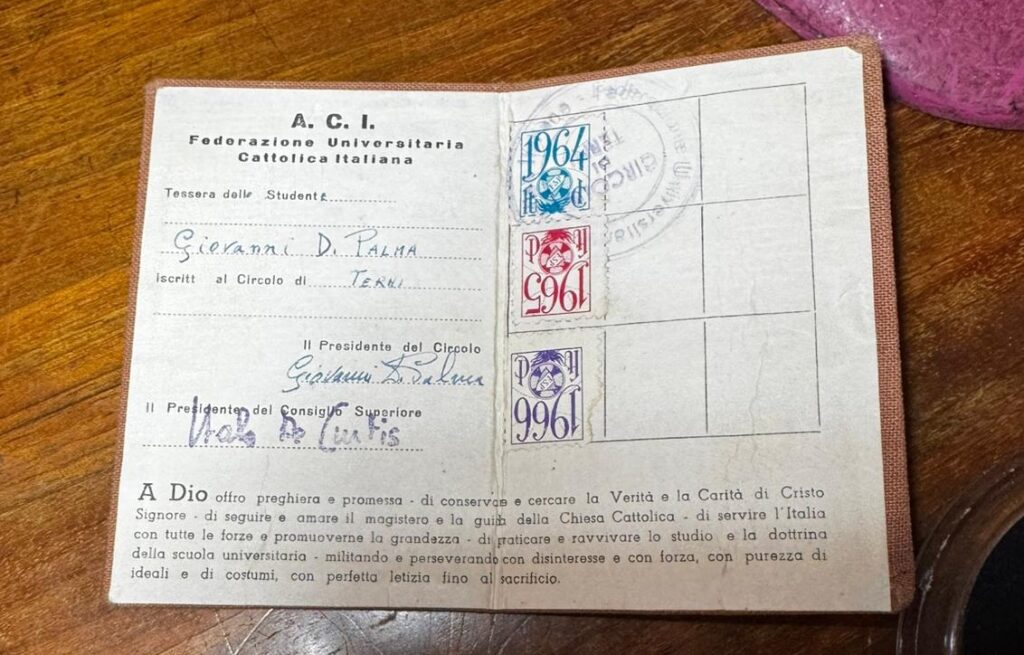 A. C. I.
Federazione Universitaria
Cattolica Italiana
Tessera dello Studente
Giovanni D. PALMA
iscritt al Circolo di TERNI
Il Presidente del Circolo
Giovanni D. Palma
Il Presidente del Consiglio Superiore
Italo De Curtis
1964
1965
1966
CIRCOLO DI TERNI
Universitaria
A Dio offro preghiera e promessa - di conservare e cercare la Verità e la Carità di Cristo
Signore - di seguire e amare il magistero e la guida della Chiesa Cattolica - di servire l'Italia
con tutte le forze e promuoverne la grandezza - di praticare e ravvivare lo studio e la dottrina
della scuola universitaria - militando e perseverando con disinteresse e con forza, con purezza di
ideali e di costumi, con perfetta letizia fino al sacrificio.